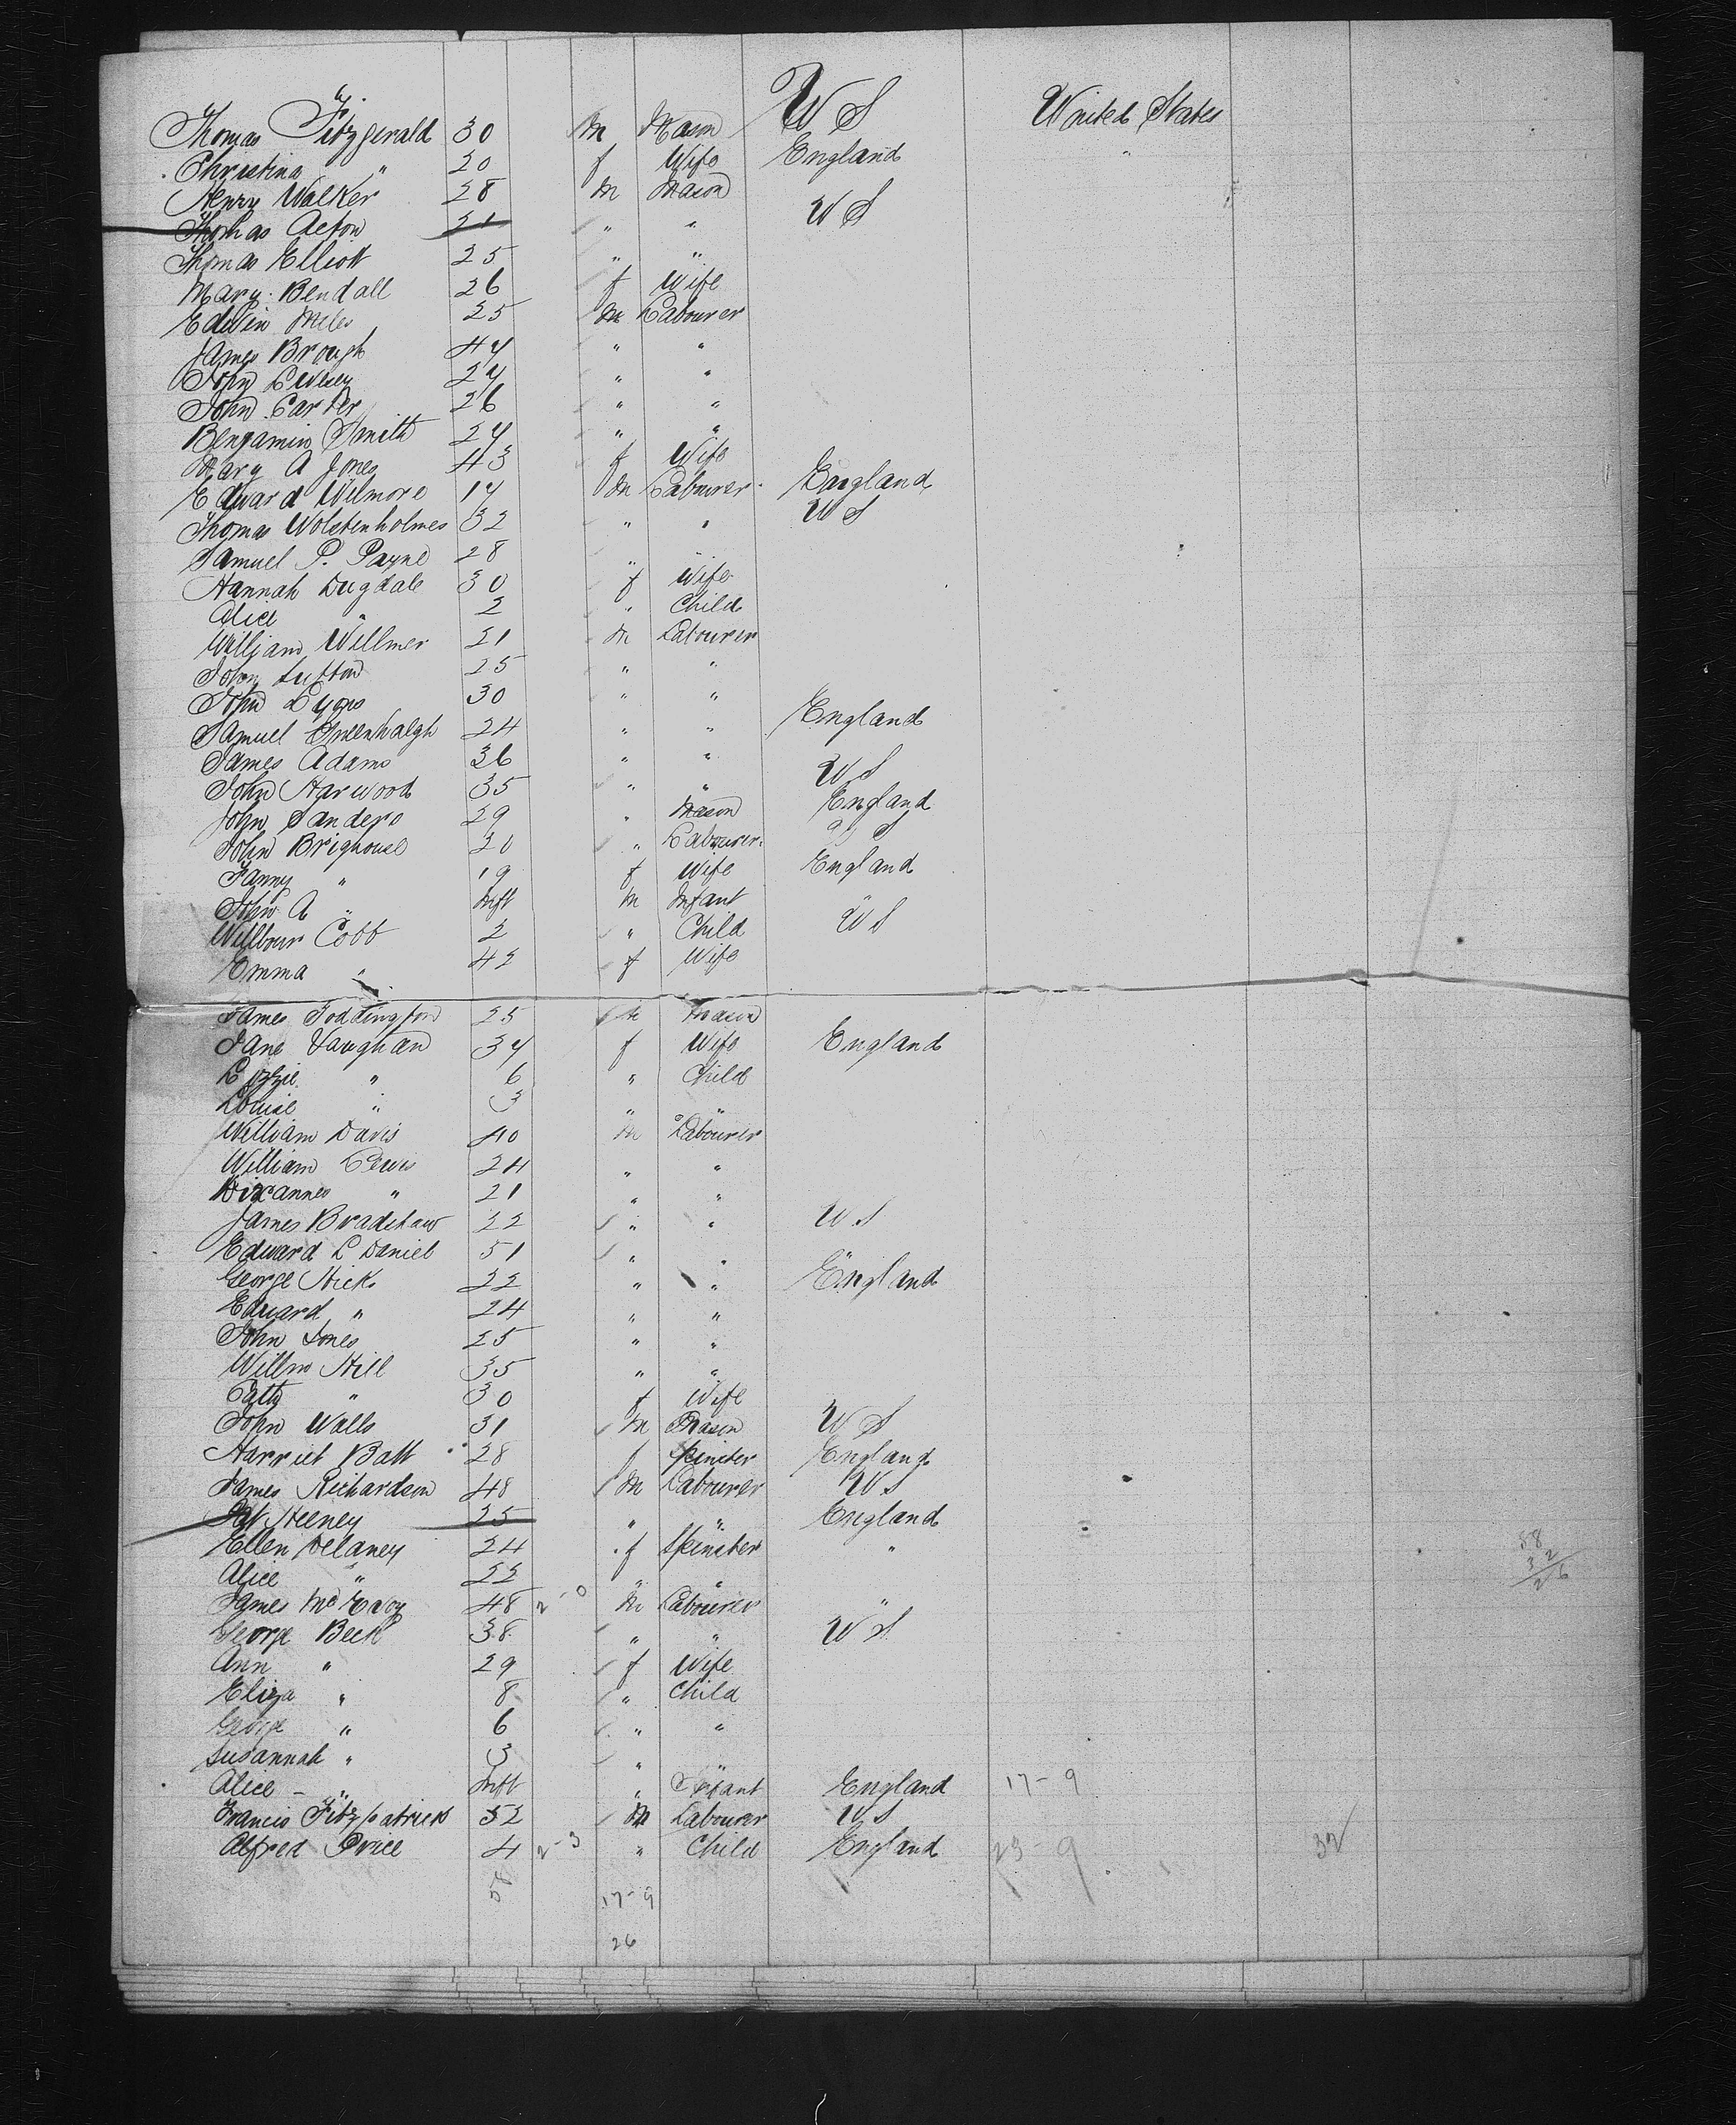 Thomas Fitzgerald 30 m Mason U S United States
Christina " 20 f Wife England "
Henry Walker 28 m Mason
Thomas Acton 21 " " U S
Thomas Elliott 25 " "
Mary Bendall 26 f Wife
Edwin Miles 25 m Labourer
James Brough 44 " "
John Livesey 24 " "
John Carter 26 " "
Benjamin Smith 24 " "
Mary A Jones 43 f Wife
Edward Wilmore 14 m Labourer England
Thomas Wolstenholmes 32 " " U S
Samuel P. Payne 28 "
Hannah Dugdale 30 f Wife
Alice " 2 " Child
William Willmer 21 m Labourer
John Sutton 25 " "
John Lyons 30 " "
Samuel Greenhalgh 24 " " England
James Adams 36 " "
John Harwood 35 " " U S
John Sanders 29 " Mason England
John Brighouse 20 " Labourer U S
Fanny " 19 f Wife England
John A " Inft m Infant "
Willbour Cobb 2 " Child U S
Emma " 42 f Wife
James Toddington 25 m Mason
Jane Vaughan 34 f Wife England
Lizzie " 6 " Child
Louise " 3 " "
William Davis 40 m Labourer
William Lewis 24 " "
" 21 " "
James Bradshaw 22 " " U S
Edward L Daniel 51 " "
George Hicks 22 " " England
Edward " 24 " "
John Jones 25 " "
Willm Hill 35 " "
" 30 f Wife
John Walls 31 m Mason U S
Harriet Batt 28 f Spinster England
James Richardson 48 m Labourer U S
Pat Heeney 25 " " England
Ellen Delaney 24 f Spinster " 58
Alice " 22 " " 32
James McEvoy 48 2-0 m Labourer " 26
George Beck 38 " " U S
Ann " 29 f Wife
Eliza " 8 " Child
George " 6 " "
Susannah " 3 " "
Alice - " Inft " Infant England 17-9
Francis Fitzpatrick 52 m Labourer U S
Alfred Price 4 2-3 " Child England 23-9 32
58 17-9
26